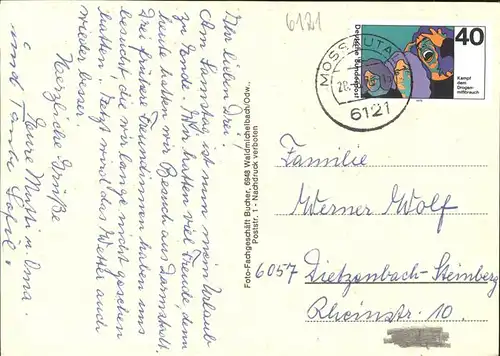 6121
Ihr lieben Drei!
Am Samstag ist nun mein Urlaub
zu Ende. Wir hatten viel Freude, denn
heute hatten wir Besuch aus Darmstadt.
Drei frühere Freundinnen haben uns
besucht, die wir lange nicht gesehen
hatten. Jetzt wird das Wetter auch
wieder besser.
Herzliche Grüße
Eure Mutti u. Oma
und Tante
Foto-Fachgeschäft Bucher, 6948 Waldmichelbach/Odw.,
Poststr. 1 - Nachdruck verboten
Deutsche Bundespost
40
Kampf
dem
Drogen-
mißbrauch
MOSSAUTAL
6121
Familie
Werner Wolf
6057 Dietzenbach-Steinberg
Rheinstr. 10.